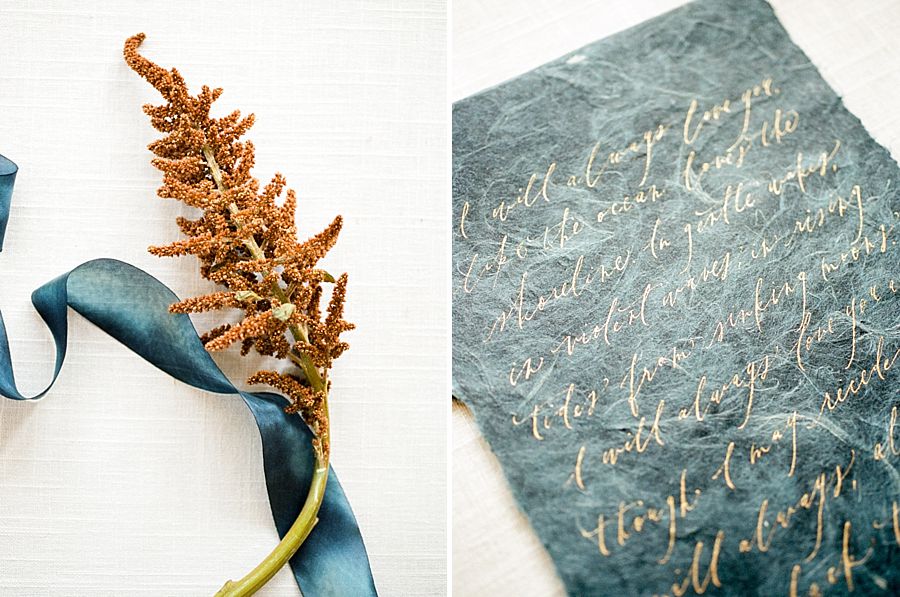 I will always love you,
like the ocean loves the
shoreline. In gentle waves,
in violent waves; in rising
tides, from sinking moons,
I will always, love you
though, I may recede
will always, al
back t